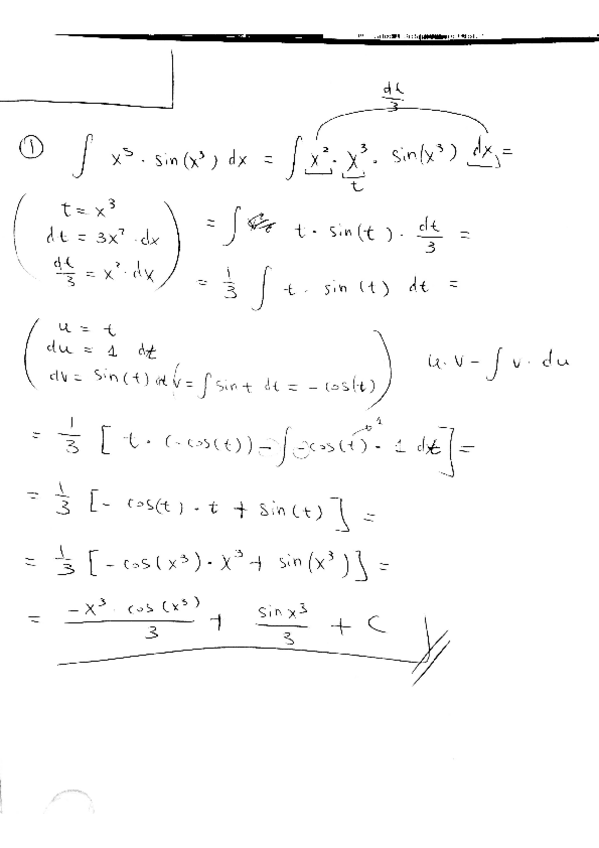 dt/3
① ∫ x⁵ · sin(x³) dx = ∫ x² · x³ · sin(x³) dx =
t
t = x³
dt = 3x² · dx
dt/3 = x² · dx
= ∫ t · sin(t) · dt/3 =
= 1/3 ∫ t · sin(t) dt =
u = t
du = 1 dt
dv = sin(t) dt v = ∫ sin t dt = -cos(t)
u · v - ∫ v · du
= 1/3 [ t · (-cos(t)) - ∫ -cos(t) · 1 dt ] =
= 1/3 [ - cos(t) · t + sin(t) ] =
= 1/3 [ - cos(x³) · x³ + sin(x³) ] =
= -x³ · cos(x³)/3 + sin x³/3 + C